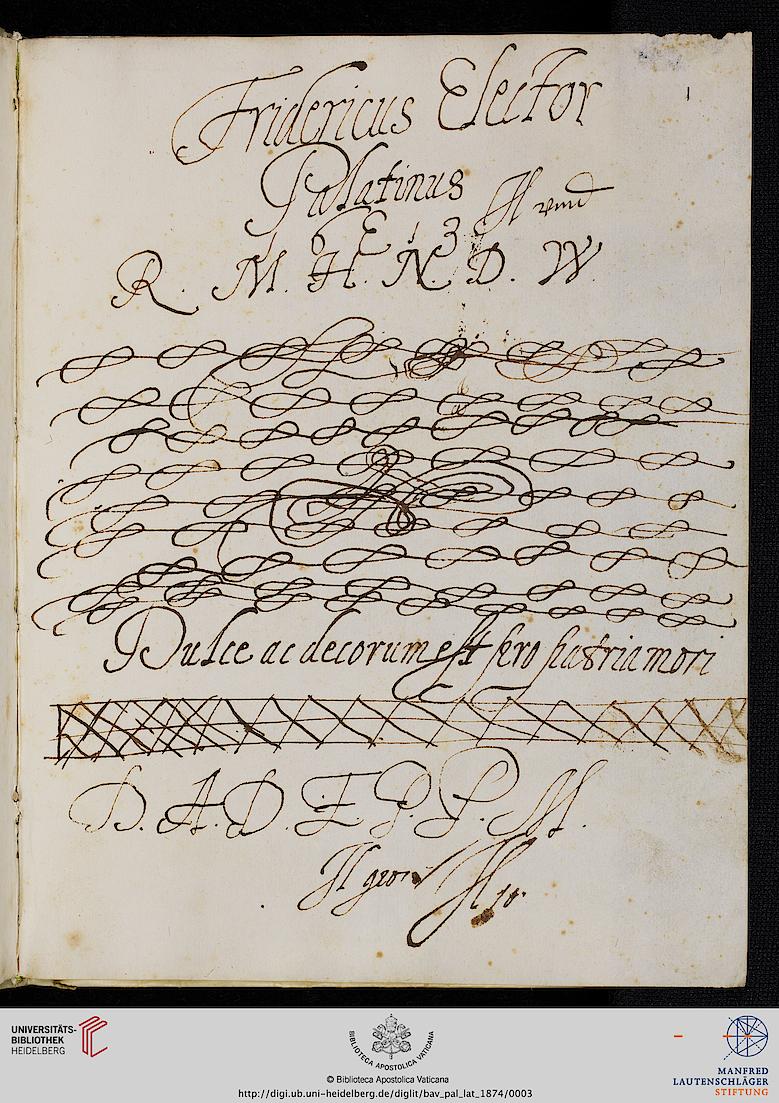 1
Fridericus Elector
Palatinus
R. M. H. N. D. W.
Dulce ac decorum est pro patria mori
D. A. D. E P. P. M.
UNIVERSITÄTS-
BIBLIOTHEK
HEIDELBERG
BIBLIOTECA APOSTOLICA VATICANA
© Biblioteca Apostolica Vaticana
http://digi.ub.uni-heidelberg.de/diglit/bav_pal_lat_1874/0003
MANFRED
LAUTENSCHLÄGER
STIFTUNG